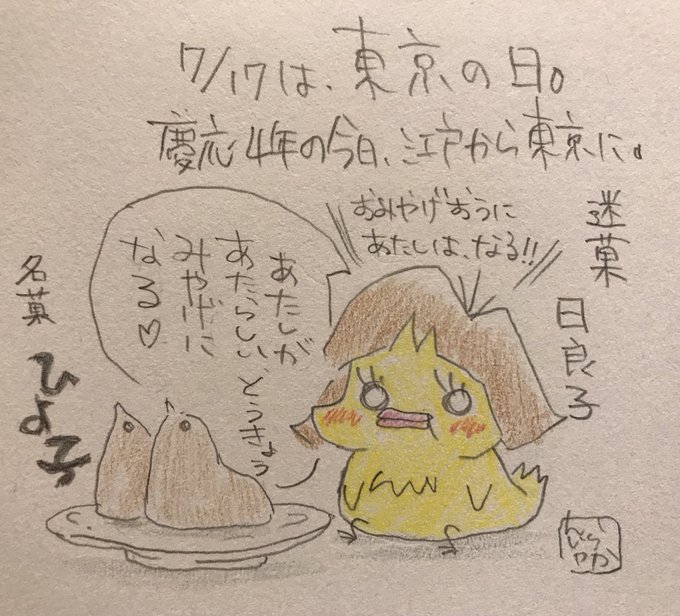 7/17は、東京の日。
慶応4年の今日、江戸から東京に。
おみやげおうに
あたしは、なる!!
迷菓
日良子
あたしが
あたらしい、とうきょう
みやげに
なる♡
名菓
ひよ子